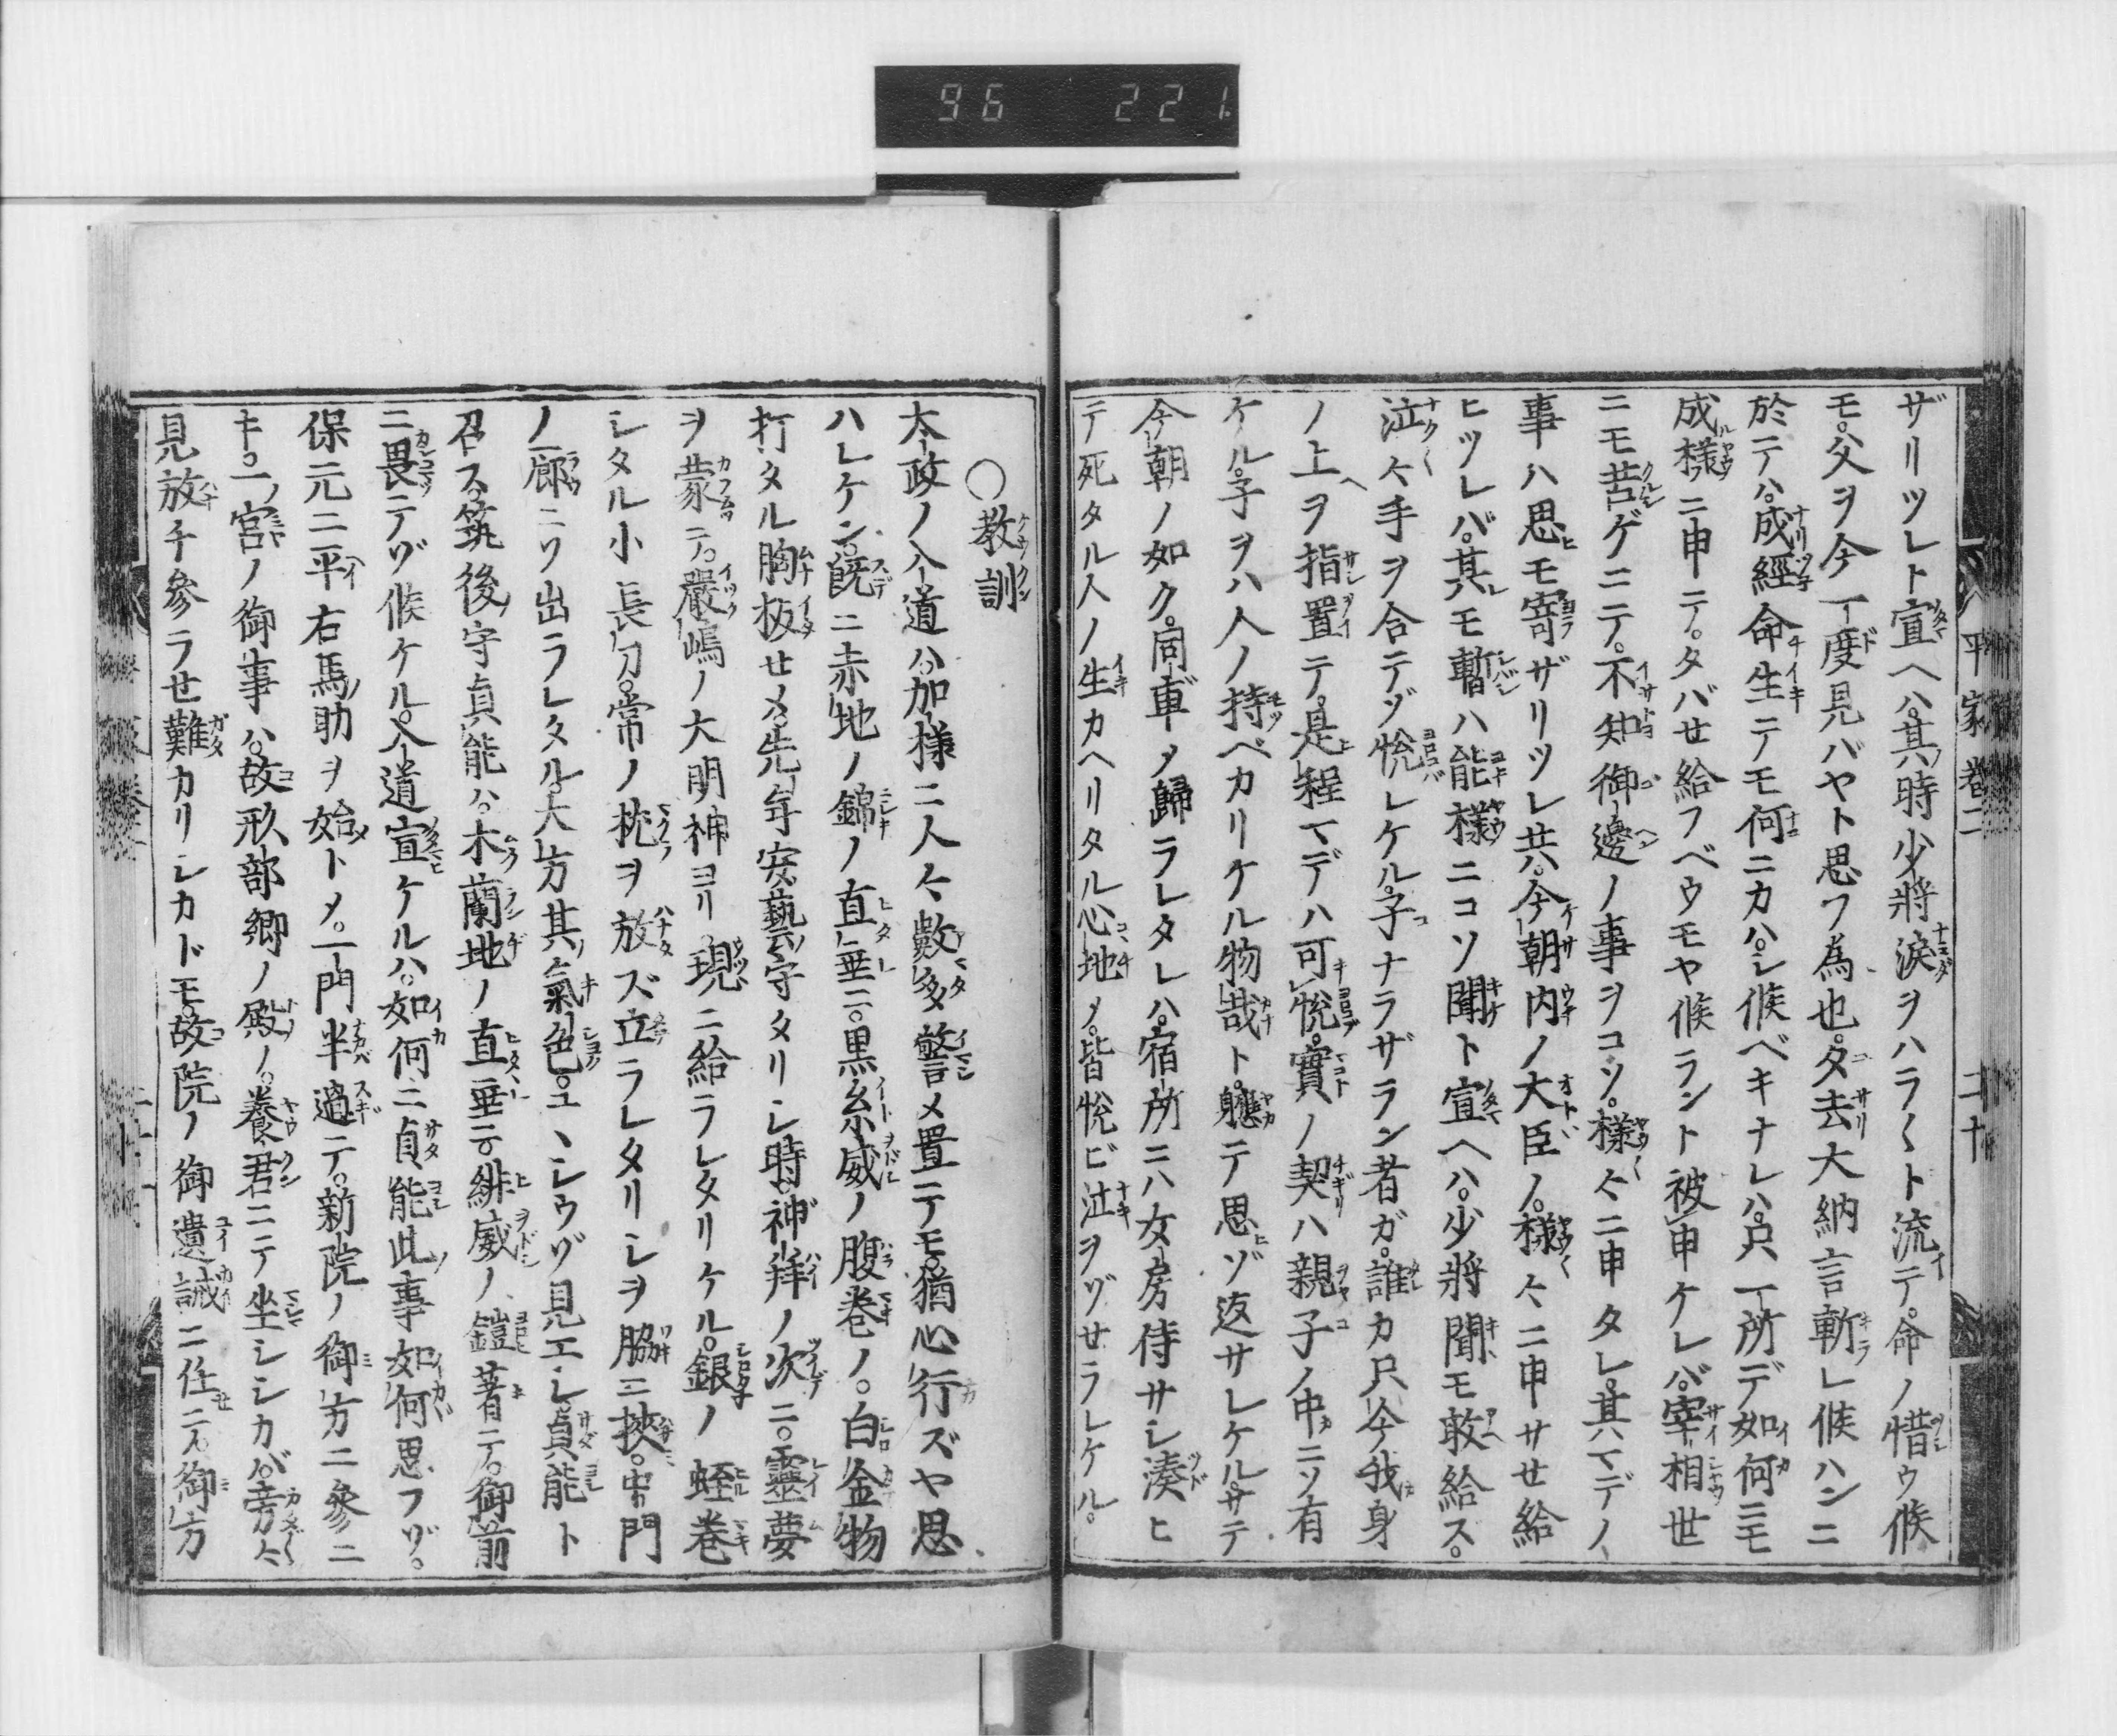 96 221
平家巻二 二十
ザリツレト宣ヘハ。其時少將涙ヲハラ〱ト流テ。命ノ惜ウ候
モ。父ヲ今一度見バヤト思フ為也。夕去大納言斬レ候ハンニ
於テハ。成經命生テモ何ニカハシ候ベキナレハ。只一所デ如何ニモ
成様ニ申テ。タバせ給フベウモヤ候ラント被申ケレバ。宰相世
ニモ苦ゲニテ。不知御邊ノ事ヲコソ。様々ニ申タレ。其マデノ
事ハ思モ寄ザリツレ共。今朝内ノ大臣ノ。様々ニ申サせ給
ヒツレバ。其モ暫ハ能様ニコソ聞ト宣ヘハ。少將聞モ敢給ス。
泣々手ヲ合テゾ悦レケル。子ナラザラン者ガ。誰カ只今我身
ノ上ヲ指置テ。是程マデハ可悦。實ノ契ハ親子ノ中ニソ有
ケル。子ヲハ人ノ持ベカリケル物哉ト。軈テ思ゾ返サレケル。サテ
今朝ノ如ク。同車〆歸ラレタレハ。宿所ニハ女房侍サシ湊ヒ
テ死タル人ノ生カヘリタル心地〆。皆悦ビ泣ヲゾせラレケル。
○教訓
太政ノ入道ハ。加様ニ人々數多警メ置テモ。猶心行ズヤ思
ハレケン。既ニ赤地ノ錦ノ直垂ニ。黒糸威ノ腹巻ノ。白金物
打タル胸板せメ。先年安藝守タリシ時。神拜ノ次ニ。靈夢
ヲ蒙テ。嚴嶋ノ大明神ヨリ。現ニ給ラレタリケル。銀ノ蛭巻
シタル小長刀。常ノ枕ヲ放ズ立ラレタリシヲ脇ニ挾。中門
ノ廊ニソ出ラレタル。大方其氣色。ユヽシウゾ見エシ。貞能ト
召ス。筑後守貞能ハ。木蘭地ノ直垂ニ緋威ノ鎧著テ。御前
ニ畏テゾ候ケル。入道宣ケルハ。如何ニ貞能此事如何思フゾ。
保元ニ平右馬助ヲ始ト〆。一門半過テ。新院ノ御方ニ參ニ
キ。一宮ノ御事ハ。故刑部卿ノ殿ノ。養君ニテ坐シシカバ。旁々
見放チ參ラせ難カリシカドモ。故院ノ御遺誡ニ任テ。御方